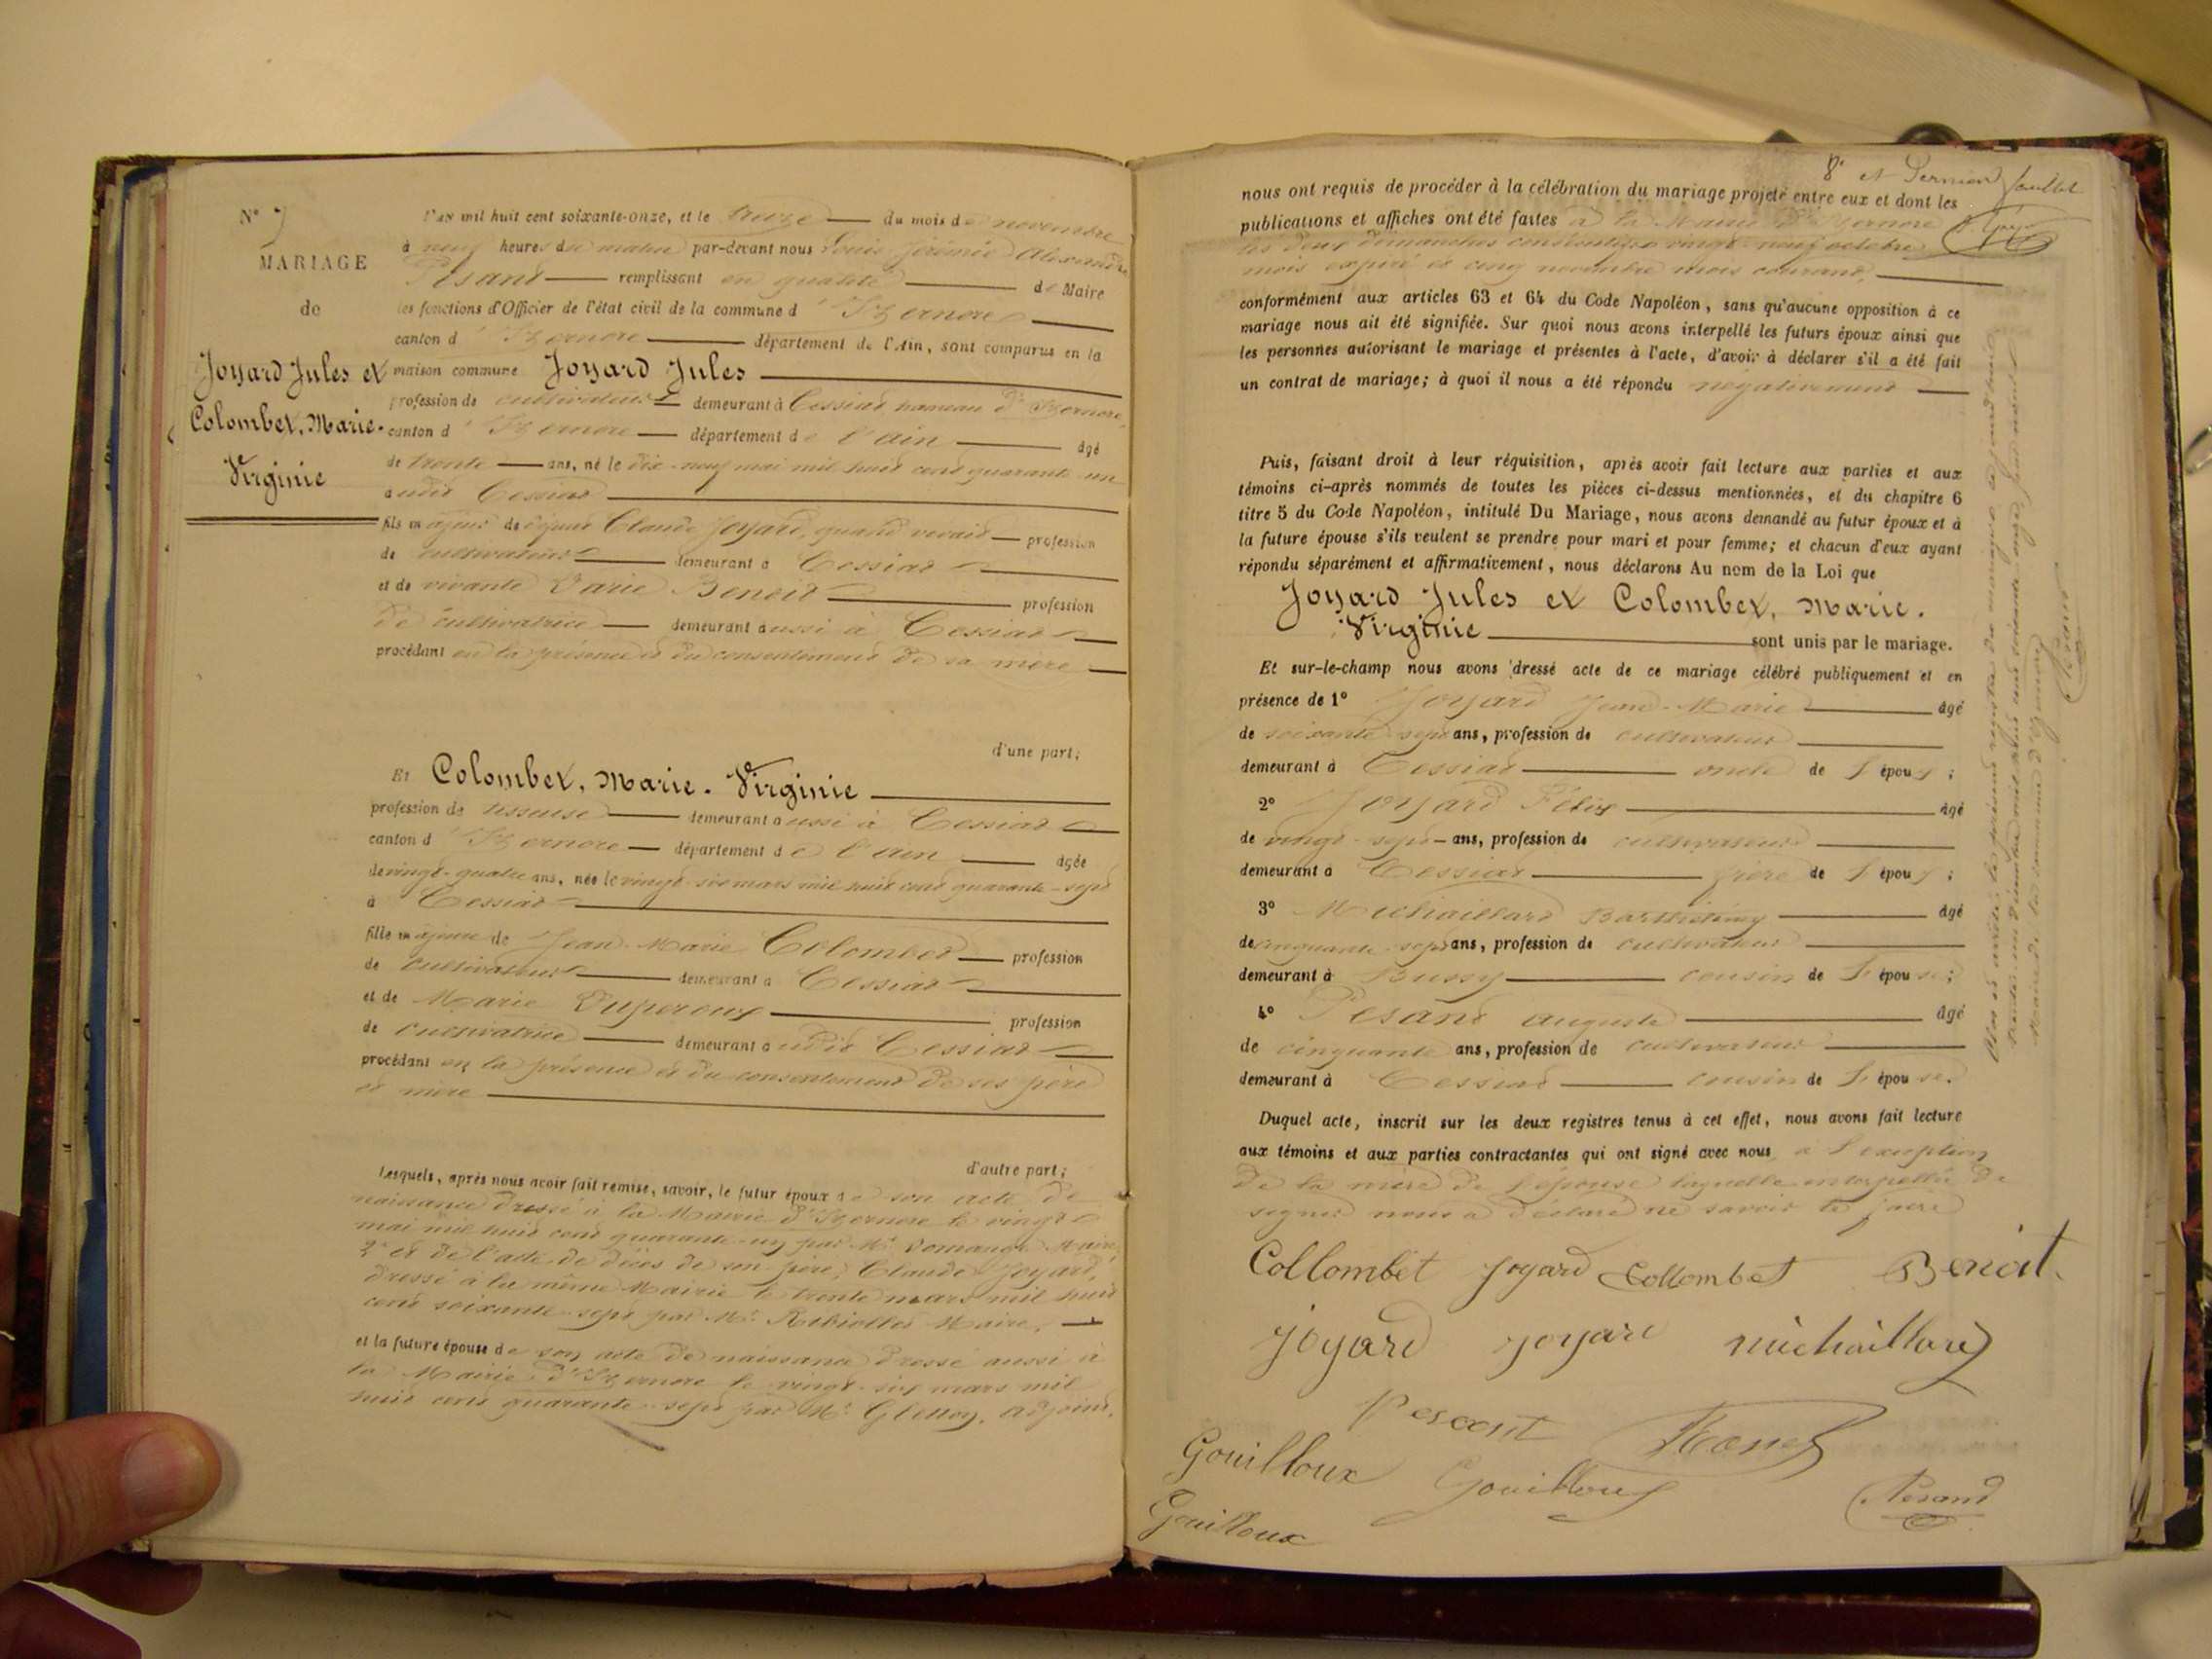 N° 7
MARIAGE
de
Joyard Jules et
Colombet, Marie-
Virginie
L'AN mil huit cent soixante-onze, et le treize du mois de novembre
à neuf heures du matin par-devant nous Louis Jérémie Alexandre
Pesand remplissant en qualité de Maire
les fonctions d'Officier de l'état civil de la commune d'Izernore
canton d'Izernore département de l'Ain, sont comparus en la
maison commune Joyard Jules
profession de cultivateur demeurant à Cessiat hameau d'Izernore,
canton d'Izernore département de l'ain âgé
de trente ans, né le dix-neuf mai mil huit cent quarante-un
audit Cessiat
fils majeur de défunt Claude Joyard, quand vivait profession
de cultivateur demeurant à Cessiat
et de vivante Marie Benoit profession
de cultivatrice demeurant aussi à Cessiat
procédant en la présence et du consentement de sa mère
d'une part;
Et Colombet, Marie-Virginie
profession de tisseuse demeurant aussi à Cessiat
canton d'Izernore département de l'ain âgée
de vingt-quatre ans, née le vingt-six mars mil huit cent quarante-sept
à Cessiat
fille majeure de Jean-Marie Colombet profession
de cultivateur demeurant à Cessiat
et de Marie Duperoux profession
de cultivatrice demeurant audit Cessiat
procédant en la présence et du consentement de ses père
et mère
d'autre part;
Lesquels, après nous avoir fait remise, savoir, le futur époux de son acte de
naissance dressé à la Mairie d'Izernore le vingt
mai mil huit cent quarante-un par Mr Domange Maire,
2° et de l'acte de décès de son père, Claude Joyard,
dressé à la même Mairie le trente mars mil huit
cent soixante-sept par Mr Maire,
et la future épouse de son acte de naissance dressé aussi à
la Mairie d'Izernore le vingt-six mars mil
huit cent quarante-sept par Mr Gletton, adjoint.
8e et Dernier feuillet
nous ont requis de procéder à la célébration du mariage projeté entre eux et dont les
publications et affiches ont été faites à la Mairie d'Izernore
les deux dimanches consécutifs vingt-neuf octobre
mois expiré et cinq novembre mois courant,
conformément aux articles 63 et 64 du Code Napoléon, sans qu'aucune opposition à ce
mariage nous ait été signifiée. Sur quoi nous avons interpellé les futurs époux ainsi que
les personnes autorisant le mariage et présentes à l'acte, d'avoir à déclarer s'il a été fait
un contrat de mariage; à quoi il nous a été répondu négativement
Puis, faisant droit à leur réquisition, après avoir fait lecture aux parties et aux
témoins ci-après nommés de toutes les pièces ci-dessus mentionnées, et du chapitre 6
titre 5 du Code Napoléon, intitulé Du Mariage, nous avons demandé au futur époux et à
la future épouse s'ils veulent se prendre pour mari et pour femme; et chacun d'eux ayant
répondu séparément et affirmativement, nous déclarons Au nom de la Loi que
Joyard Jules et Colombet, Marie-
Virginie sont unis par le mariage.
Et sur-le-champ nous avons dressé acte de ce mariage célébré publiquement et en
présence de 1° Joyard Jean-Marie âgé
de soixante-sept ans, profession de cultivateur
demeurant à Cessiat oncle de l'époux;
2° Joyard Félix âgé
de vingt-sept ans, profession de cultivateur
demeurant à Cessiat frère de l'époux;
3° Michaillard Barthélemy âgé
de cinquante-sept ans, profession de cultivateur
demeurant à Bussy cousin de l'épouse;
4° Pesand auguste âgé
de cinquante ans, profession de cultivateur
demeurant à Cessiat cousin de l'épouse.
Duquel acte, inscrit sur les deux registres tenus à cet effet, nous avons fait lecture
aux témoins et aux parties contractantes qui ont signé avec nous, à l'exception
de la mère de l'épouse laquelle interpellée de
signer nous a déclaré ne savoir le faire
Collombet Joyard Collombet Benoit
joyard joyard michaillard
Pesant
Gouilloux Gouilloux Pesand
Gouilloux
Clos et arrêté le présent registre de mariage
Maire de la commune d'Izernore
Pesand